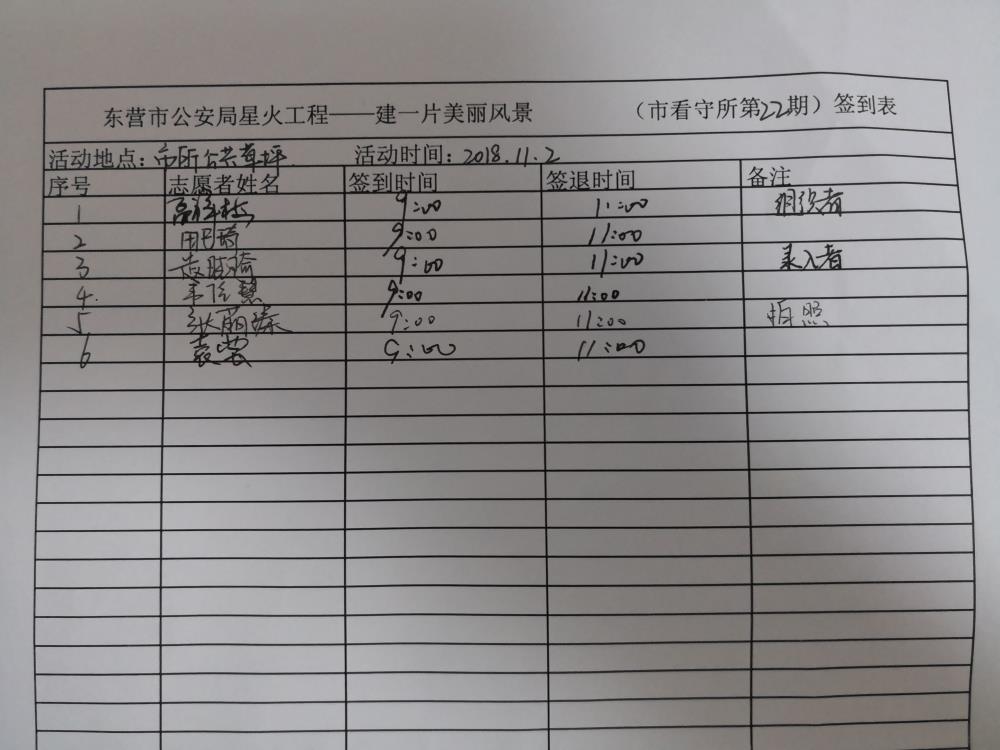 东营市公安局星火工程——建一片美丽风景 （市看守所第22期）签到表
活动地点：市所公共草坪 活动时间：2018.11.2
序号 志愿者姓名 签到时间 签退时间 备注
1 9:00 11:00 组织者
2 9:00 11:00
3 9:00 11:00 录入者
4. 9:00 11:00
5 9:00 11:00 拍照
6 袁莹 9:00 11:00